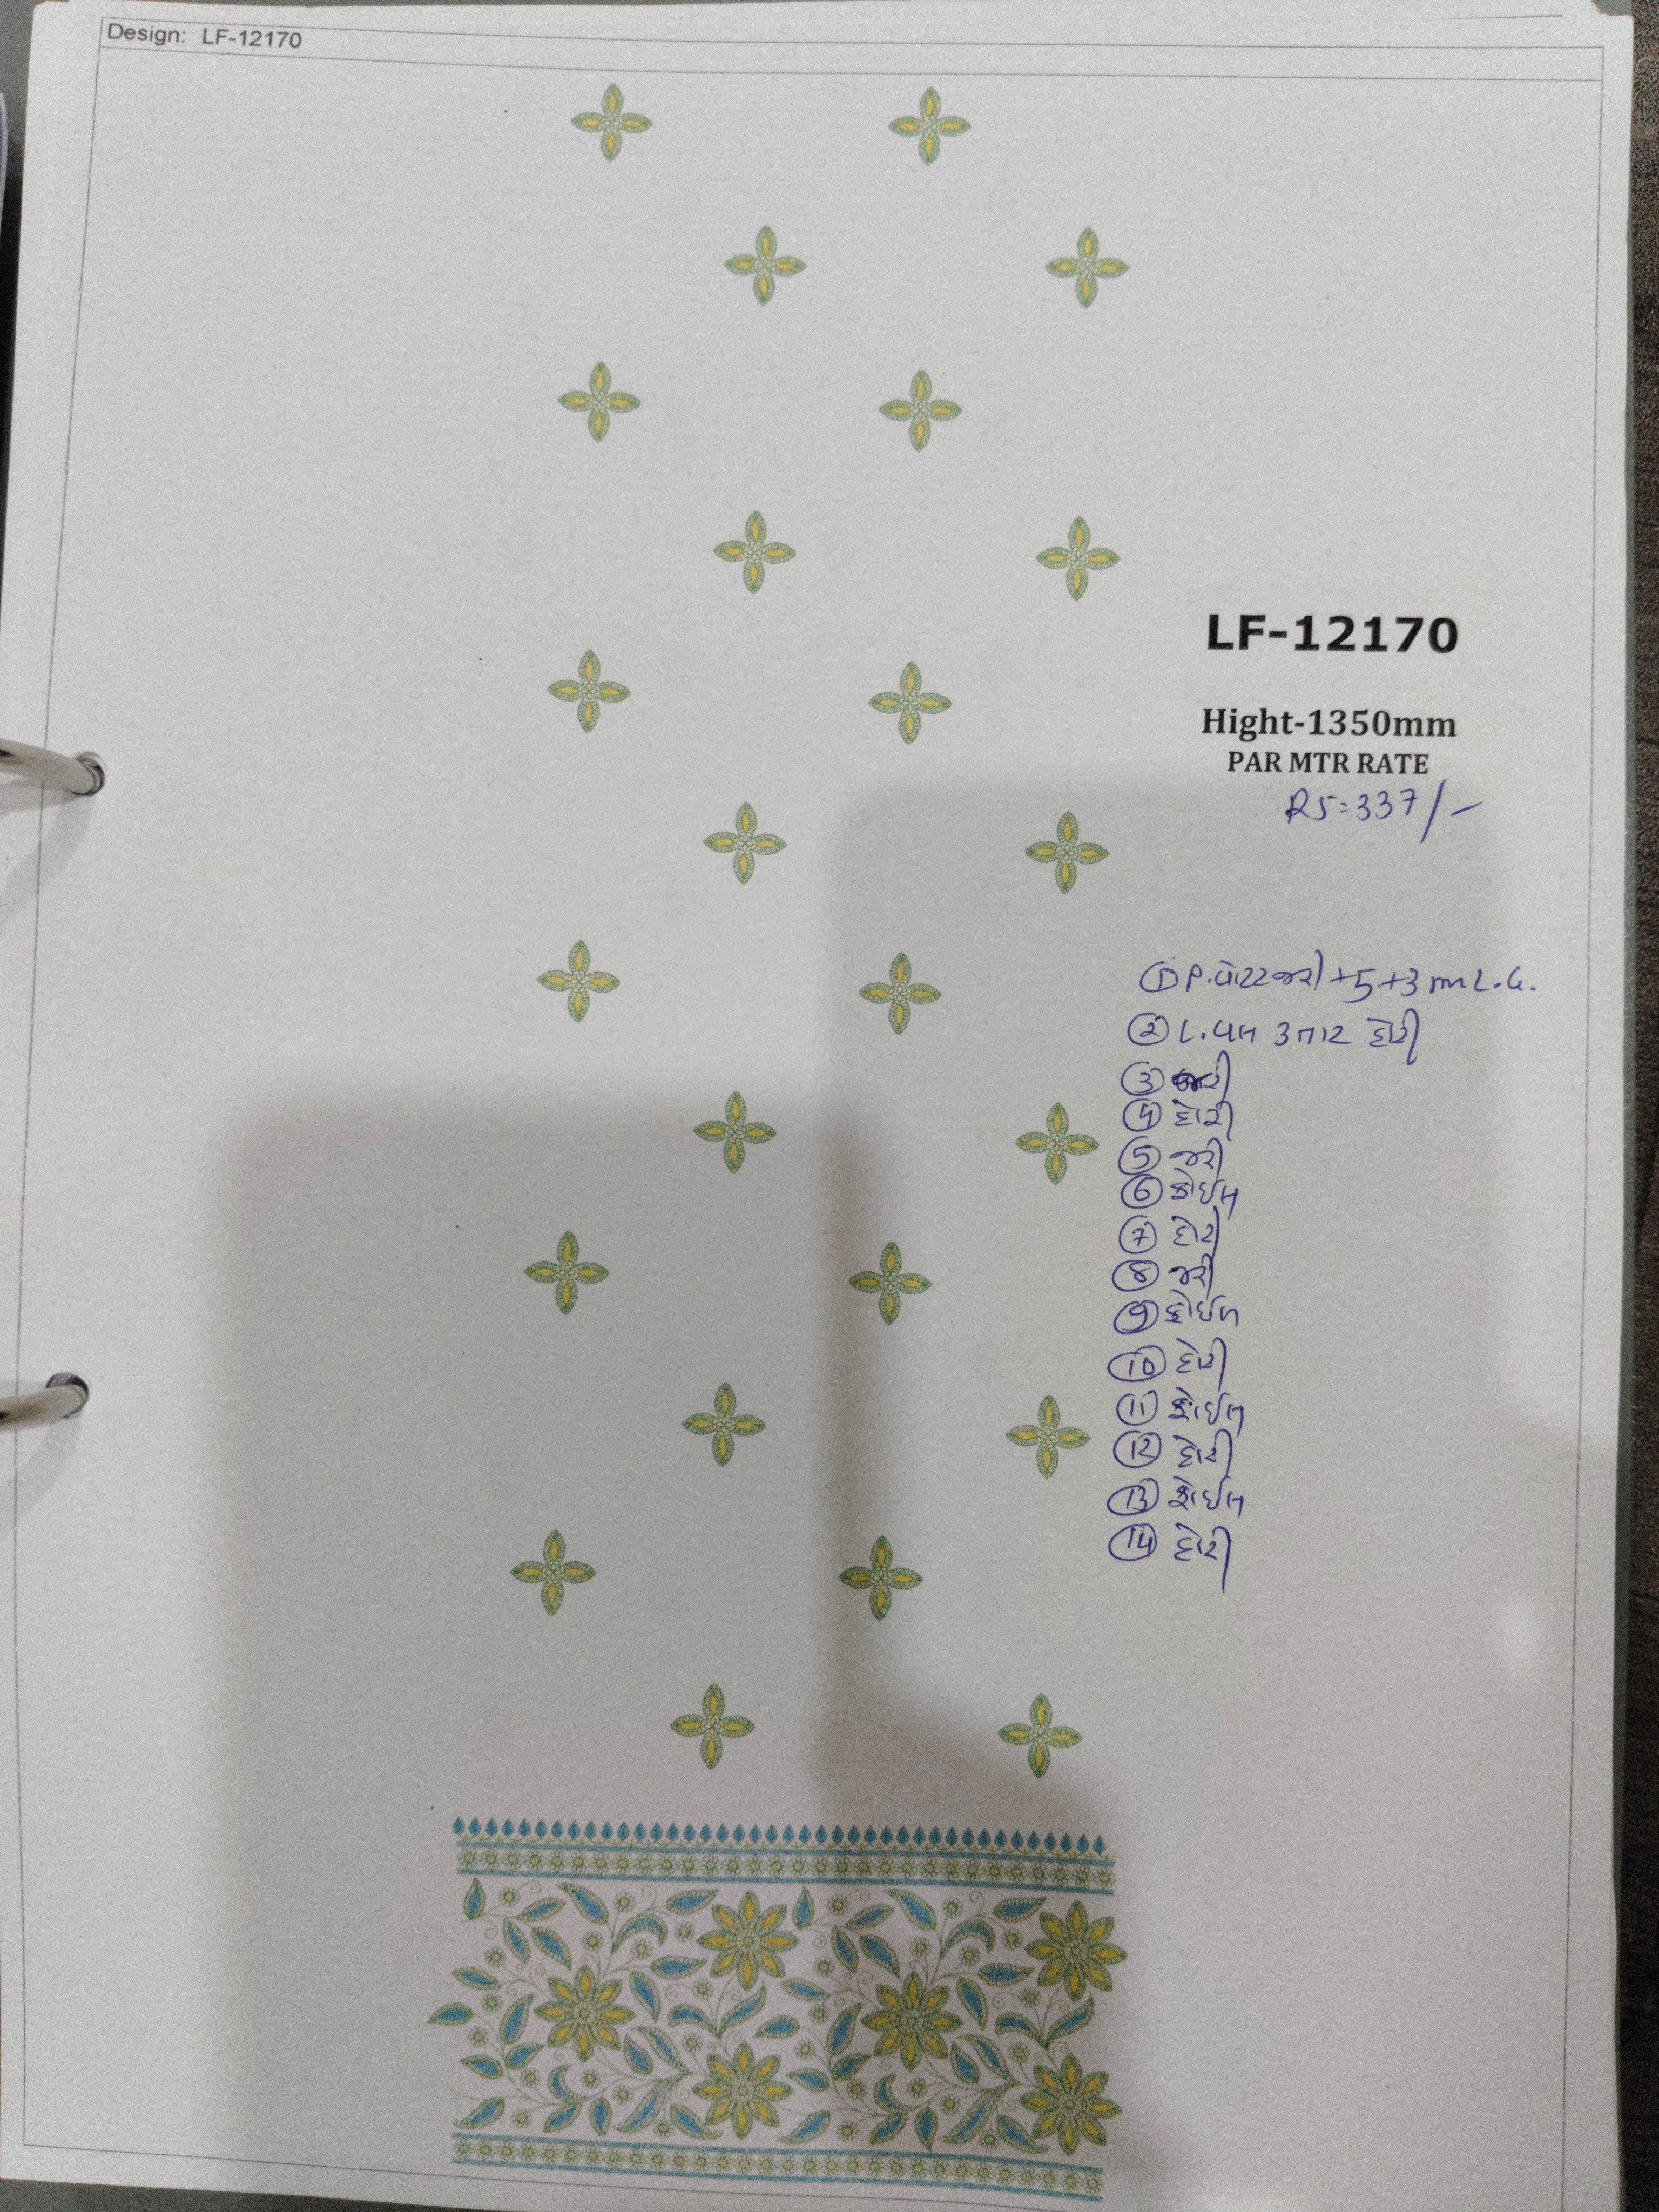 Design: LF-12170
LF-12170
Hight-1350mm
PAR MTR RATE
RS=337/-
① P.વોટરજરી+5+3 mm L.G.
② L.યલ 3 તાર દોરી
③ જરી
④ દોરી
⑤ જરી
⑥ કોઈલ
⑦ દોરી
⑧ જરી
⑨ કોઈલ
⑩ દોરી
⑪ કોઈલ
⑫ દોરી
⑬ કોઈલ
⑭ દોરી